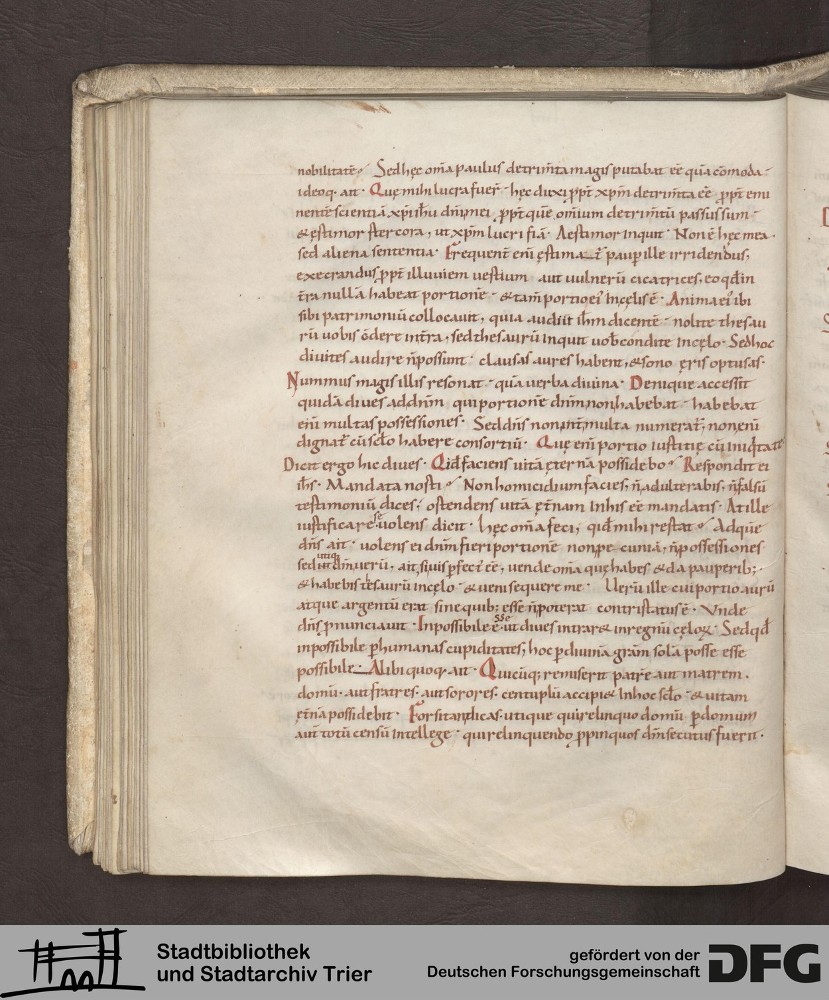 nobilitatẽ. Sed hęc om̃a paulus detrim̃ta magis putabat eẽ quã cõmoda.
ideoq; ait. Quę mihi lucra fuer̃. hęc duxi ꝓpt̃ xp̃m detrim̃ta eẽ. ꝓpt̃ emi
nentẽ scientiã xp̃i ihũ dñi mei. ꝓpt̃ quẽ om̃ium detrim̃tũ passus sum.
& ęstimor stercora, ut xp̃m lucri fiã. Aestimor inquit. Non ẽ hęc mea.
sed aliena sententia. Frequent̃ eñi ęstimat̃ pauꝑ ille irridendus,
execrandus ꝓpt̃ illuviem uestium aut uulnerũ cicatrices. eo qđ in
t̃ra nullã habeat portionẽ. & tam̃ portio ei' in cęlis ẽ. Anima ei' ibi
sibi patrimoniũ collocauit, quia audiit ih̃m dicentẽ. nolite thesau
rũ uobis cõdere in t̃ra, sed thesaurũ inquit uob̃ condite in cęlo. Sed hoc
diuites audire ñ possunt. clausas aures habent, & sono ęris optusas.
Nummus magis illis resonat. quã uerba diuina. Denique accessit
quidã diues ad dñm qui portionẽ dñm non habebat. habebat
eñi multas possessiones. Sed dñs non int̃ multa numerat̃; non eñi
dignat̃ cũ sc̃lo habere consortiũ. Quę eñi portio iustitię cũ iniq̃tate
Dicit ergo hic diues. Qid faciens uitã ęternã possidebo. Respondit ei
ih̃s. Mandata nosti. Non homicidium facies, ñ adulterabis, ñ falsũ
testimoniũ dices; ostendens uitã ęt̃nam in his eẽ mandatis. At ille
iustificare se uolens dicit. hęc om̃a feci, qid mihi restat. Adque
dñs ait. uolens ei dñm fieri portionẽ non pecuniã, ñ possessiones
sed utiq; dm̃ uerũ, ait, si uis ꝑfect' eẽ, uende om̃a quę habes & da pauperib;.
& habebis thesaurũ in cęlo. & ueni sequere me. Uerũ ille cui portio aurũ
atque argentũ erat sine quib; esse ñ poterat contristatus ẽ. Vnde
dñs ꝓnunciauit. Inpossibile esse ut diues intrar& in regnũ cęloꝝ. Sed qđ
inpossibile ꝑ humanas cupiditates, hoc ꝑ diuinã gratm̃ solã posse esse
possibile. Alibi quoq; ait. Quicũq; remiserit patrẽ aut matrem.
domũ. aut fratres. aut sorores. centuplũ accipi& in hoc sc̃lo. & uitam
ęt̃nã possidebit. Forsitan dicas. utique qui relinquo domũ ꝑ domum
aut totũ censũ intellege. qui relinquendo ꝓpinquos dm̃ secutus fuerit.
Stadtbibliothek
und Stadtarchiv Trier
gefördert von der
Deutschen Forschungsgemeinschaft
DFG